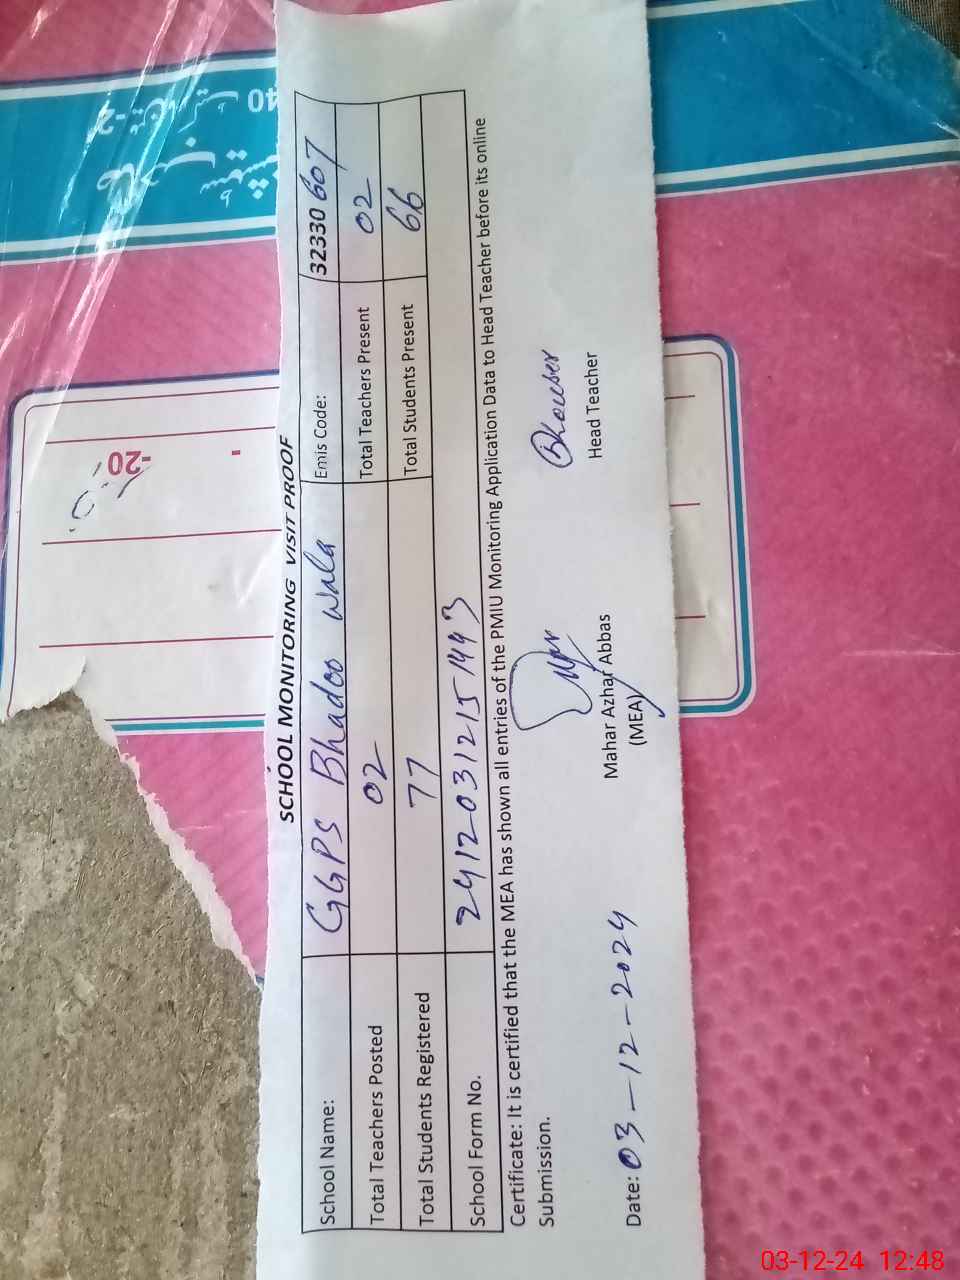 SCHOOL MONITORING VISIT PROOF
School Name: GGPS Bhadoo Wala Emis Code: 32330 607
Total Teachers Posted 02 Total Teachers Present 02
Total Students Registered 77 Total Students Present 66
School Form No. 24120312151443
Certificate: It is certified that the MEA has shown all entries of the PMIU Monitoring Application Data to Head Teacher before its online
Submission.
Mahar Azhar Abbas
Head Teacher
(MEA)
Date: 03-12-2024
40
-20
03-12-24 12:48